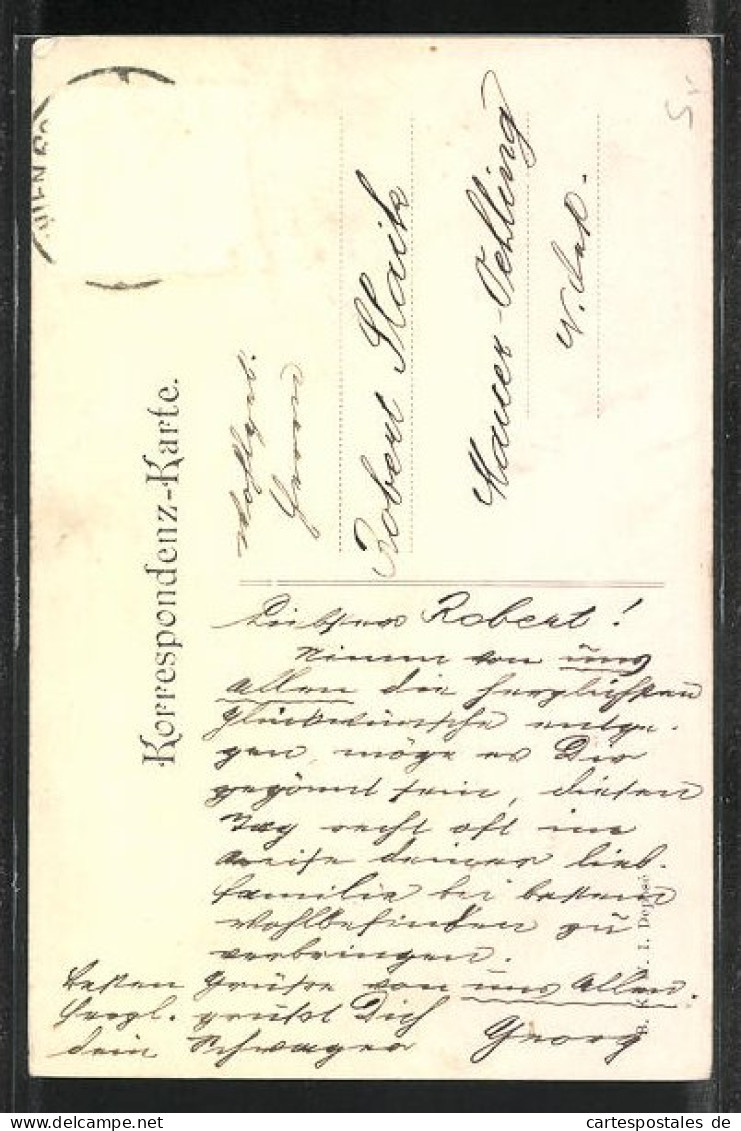 WIEN
Korrespondenz-Karte.
Wohlgeb.
Herrn
Robert
Mauer-Oehling
Liebster Robert!
Nimm von uns
Allen die herzlichsten
Glückwünsche entge-
gen, möge es Dir
gegönnt sein, diesen
Tag recht oft im
Kreise deiner lieb.
Familie bei bestem
Wohlbefinden zu
verbringen.
Besten Grüße von uns Allen.
Herzl. grüßt Dich
dein Schwager Georg
cartespostales de